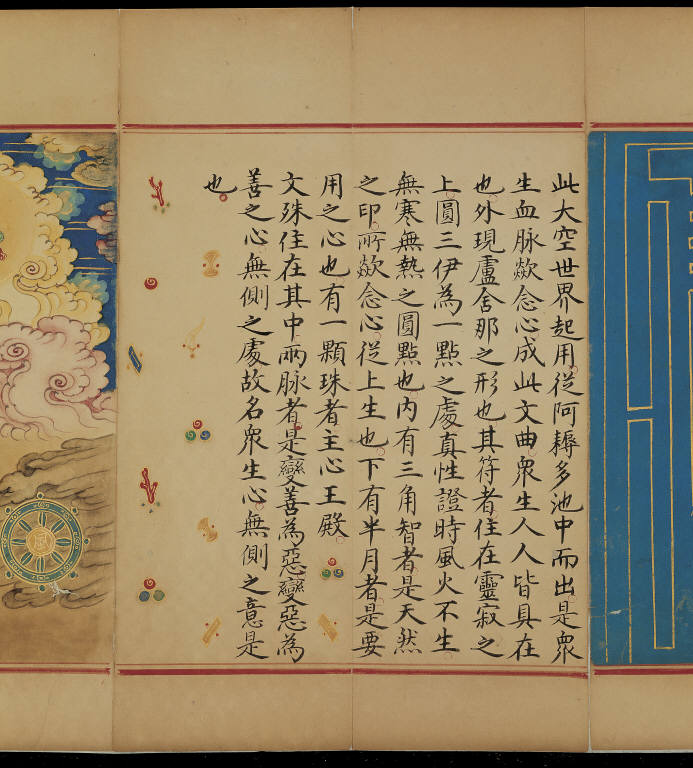 此大空世界起用從阿耨多池中而出是衆
生血脉歘念心成此文曲衆生人人皆具在
也外現盧舍那之形也其符者住在靈寂之
上圓三伊為一點之處真性證時風火不生
無寒無熱之圓點也內有三角智者是天然
之印所歘念心從上生也下有半月者是要
用之心也有一顆珠者主心王殿
文殊住在其中兩脉者是變善為惡變惡為
善之心無側之處故名衆生心無側之意是
也